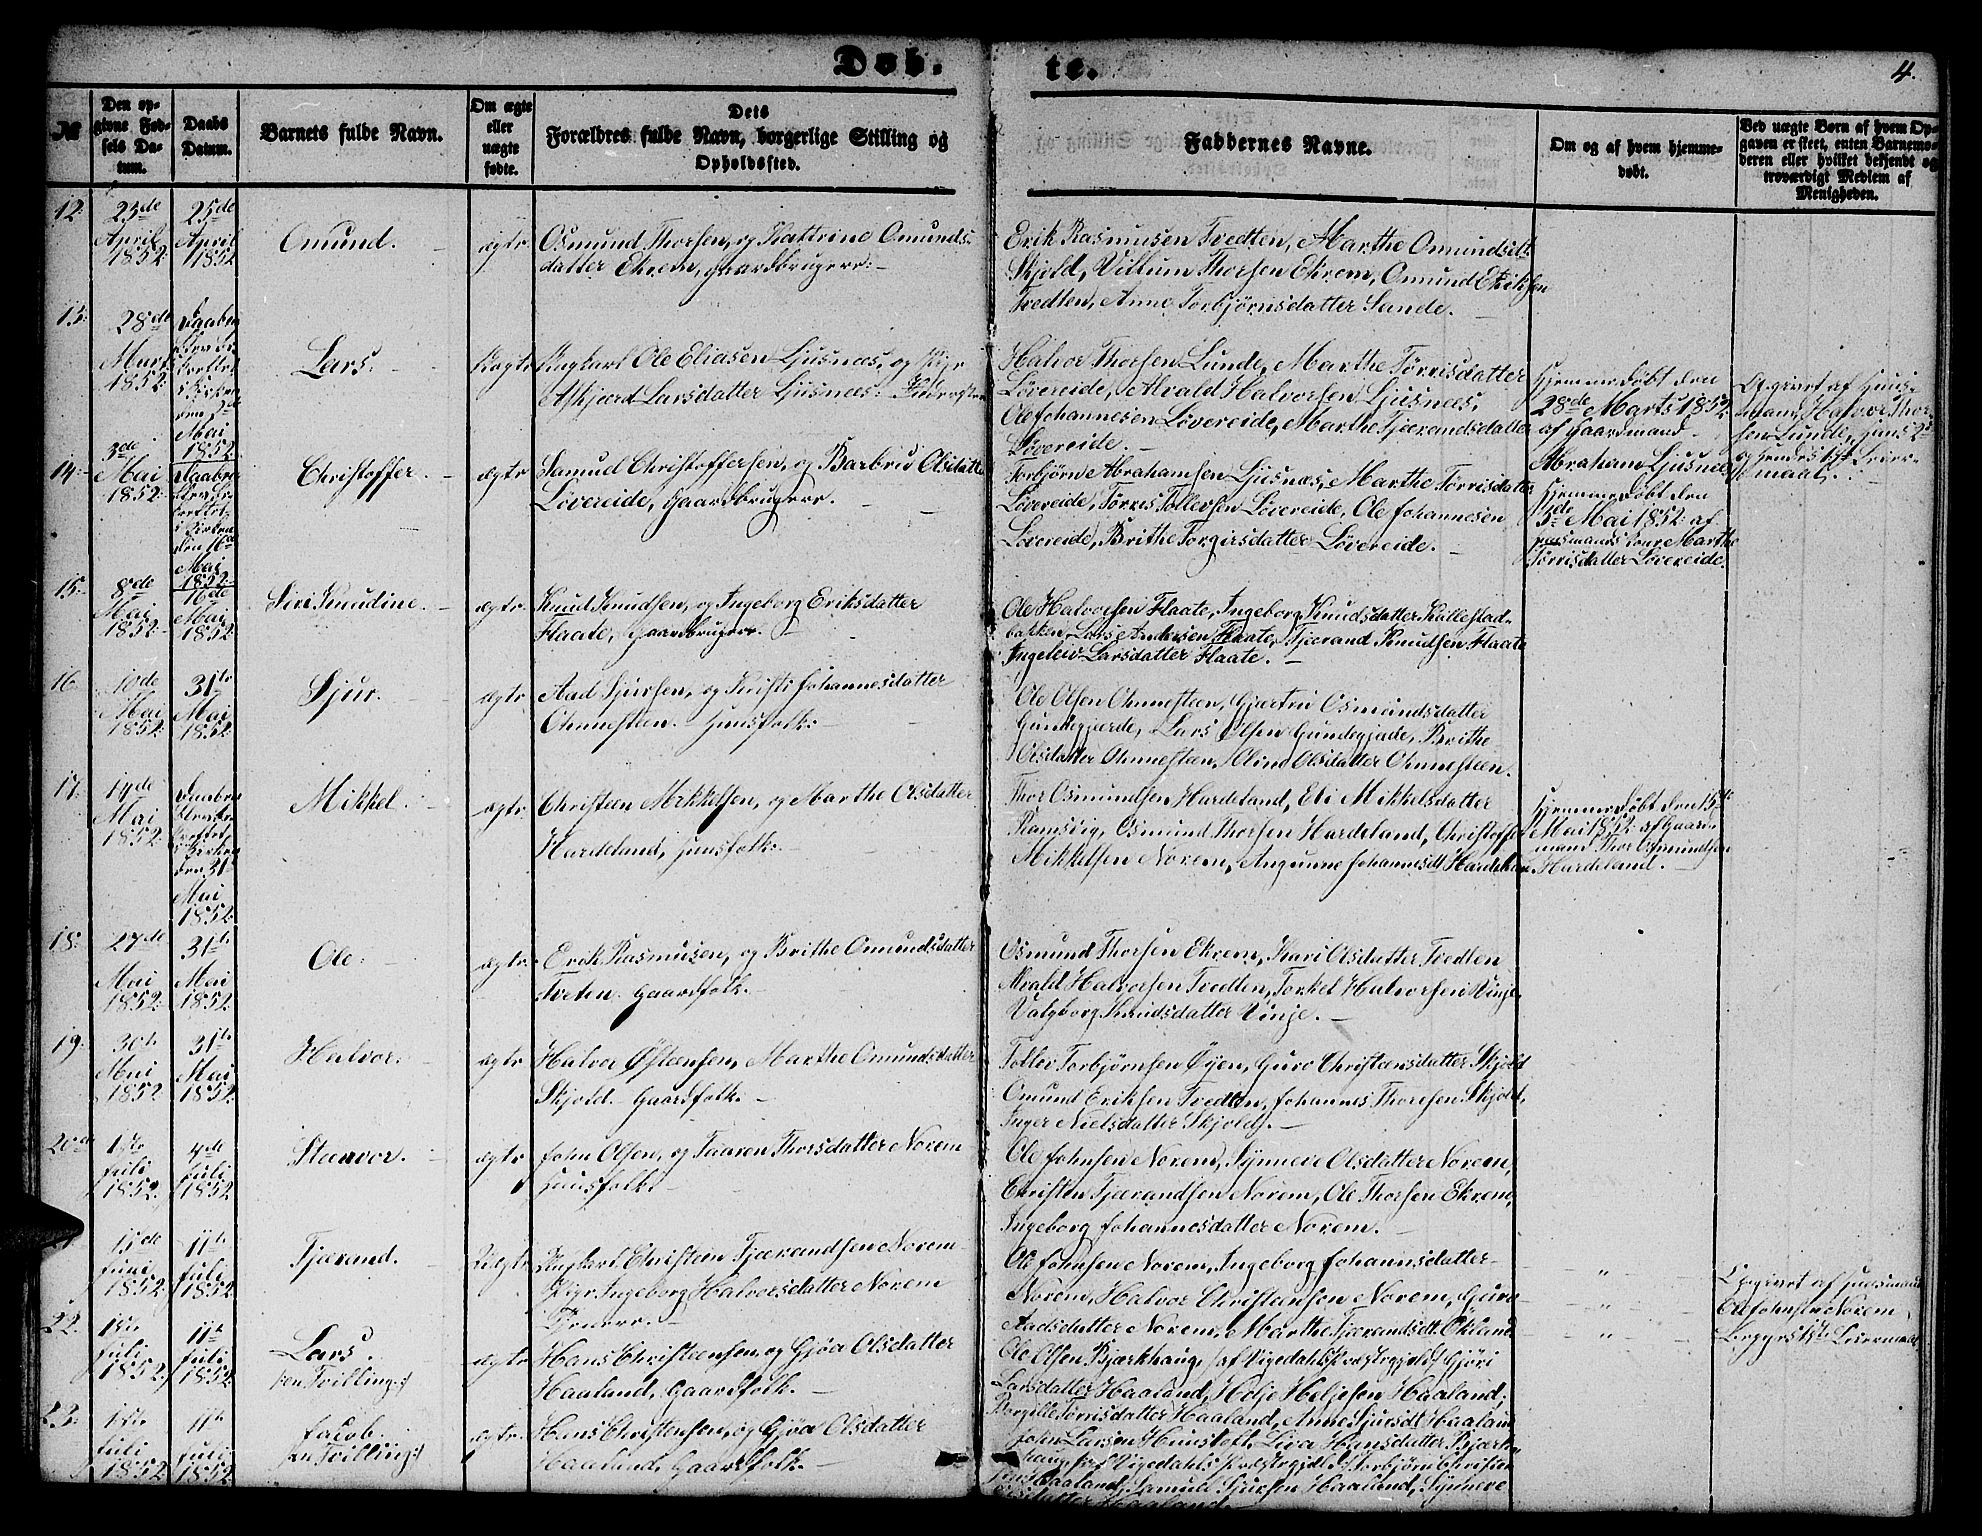 Døb. te. 4.
№
Den op-
givne Fød-
sels Da-
tum.
Daabs
Datum.
Barnets fulde Navn.
Om ægte
eller
uægte
fødte.
Dets
Forældres fulde Navn, borgerlige Stilling og
Opholdssted.
Faddernes Navne.
Om og af hvem hjemme-
døbt.
Ved uægte Børn af hvem Op-
gaven er skeet, enten Barnemo-
deren eller hvilket bekjendt og
troværdigt Medlem af
Menigheden.
12.
25de
April
1852
25de
April
1852
Omund.
ægte
Osmund Thorsen, og Kattrine Omunds-
datter Ekrem, Gaardbrugere.
Erik Rasmusen Tvedten, Marthe Omundsdt
Skjold, Villum Thorsen Ekrem, Omund Eriksen
Tvedten, Anne Torbjørnsdatter Sande.
13.
28de
Marts
1852
Mai
1852
Lars.
Uægte
Ungkarl Ole Eliasen Ljusnæs, og Pige
Askjerd Larsdatter Ljusnæs.
Halvor Thorsen Lunde, Marthe Tørrisdatter
Løvereide, Alvald Halvorsen Ljusnæs,
Ole Johannesen Løvereide, Marthe Tjærandsdatter
Løvereide.
Hjemmedøbt den
28de Marts 1852
af Gaardmand
Abraham Ljusnæs
Opgivet af Huus-
mand Halvor Thor-
sen Lunde, hans 2d
og hendes 1ste Leier-
maal.
14.
3de
Mai
1852
Mai
1852
Christoffer.
ægte
Samuel Christoffersen, og Barbru Olsdatter
Løvereide, Gaardbrugere.
Torbjørn Abrahamsen Ljusnæs, Marthe Tørrisdatter
Løvereide, Tørres Tollevsen Løvereide, Ole Johannesen
Løvereide, Brithe Torgirsdatter Løvereide.
Hjemmedøbt den
Mai 1852 af
Marthe
Tørrisdatter Løvereide.
15.
8de
Mai
1852
16de
Mai
1852
Siri Knudine.
ægte
Knud Knudsen, og Ingeborg Eriksdatter
Flaate, Gaardbrugere.
Ole Halvorsen Flaate, Ingeborg Knudsdatter Kallestad-
bakken, Lars Andersen Flaate, Tjærand Knudsen Flaate
Ingeleiv Larsdatter Flaate.
16
10de
Mai
1852
31te
Mai
1852
Sjur.
ægte
Aad Sjursen, og Kristi Johannesdatter
Ohmesteen. Huusfolk.
Ole Olsen Ohmesteen, Gjærtru Osmundsdatter
Gundegjerde, Lars Olsen Gundegjerde, Brithe
Olsdatter Ohmesteen, Oline Olsdatter Ohmesteen.
17.
14de
Mai
1852
den 31te
Mai
1852
Mikkel
ægte
Christeen Mikkelsen, og Marthe Olsdatter
Hardeland, Huusfolk.
Thor Osmundsen Hardeland, Eli Mikkelsdatter
Ramsvig, Osmund Thorsen Hardeland, Christoffer
Mikkelsen Norem, Angunne Johannesdt Hardeland.
Hjemmedøbt den 15de
Mai 1852 af Gaard-
mand Thor Osmundsen
Hardeland.
18.
27de
Mai
1852
31te
Mai
1852
Ole.
ægte
Erik Rasmusen, og Brithe Omundsdatter
Tveten. Gaardfolk.
Osmund Thorsen Ekrem, Kari Olsdatter Tvedten
Alvald Halvorsen Tvedten, Torkel Halvorsen Vinje,
Valgborg Knudsdatter Vinje.
19.
30te
Mai
1852
31te
Mai
1852
Halvor.
ægte
Halvor Østensen, Marthe Omundsdatter
Skjold. Gaardfolk.
Tollev Torbjørnsen Øyen, Guro Christensdatter Skjold
Omund Eriksen Tvedten, Johannes Thoresen Skjold,
Inger Nielsdatter Skjold.
20
1ste
Juli
1852
4de
Juli
1852
Steenvor.
ægte
John Olsen, og Taaren Thorsdatter Norem
Huusfolk.
Ole Johnsen Norem, Synneve Olsdatter Norem,
Christen Tjærandsen Norem, Ole Thorsen Ekrem,
Ingeborg Johannesdatter Norem.
15de
Juni
1852
11te
Juli
1852
Tjærand.
Uægte
Ungkarl Christeen Tjærandsen Norem
Pige Ingeborg Halvorsdatter Norem
Ole Johnsen Norem, Ingeborg Johannsdatter
Norem, Halvor Christeensen Norem, Guro
Aadsdatter Norem, Marthe Tjærandsdt. Økland
Opgivet af Huusmand
Ole Johnsen Norem
Begges 1ste Leiermaal
22.
1ste
Juli
1852
11te
Juli
1852
Lars.
(en Tvilling)
ægte
Hans Christeensen, og Gjøa Olsdatter
Haaland, Gaardfolk.
Ole Olsen Bjærkhaug, (af Vigedahls Præstegjeld) Gjøri
Larsdatter Haaland, Helje Heljesen Haaland,
Borgille Tørrisdatter Haaland, Anne Sjursdt Haaland
23.
1ste
Juli
1852
11te
Juli
1852
Jacob.
(en Tvilling)
ægte
Hans Christensen, og Gjøa Olsdatter
Haaland, Gaardfolk.
John Larsen Hunstoft, Liva Hansdatter Bjærk-
haug (af Vigedahls Præstegjeld) Torbjørn Christen-
sen Haaland, Samuel Sjursen Haaland, Synneve
Haaland